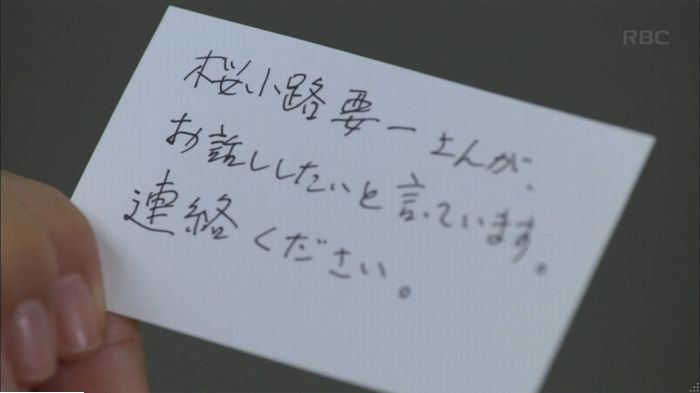 RBC
桜小路要一さんが、
お話ししたいと言っています。
連絡ください。